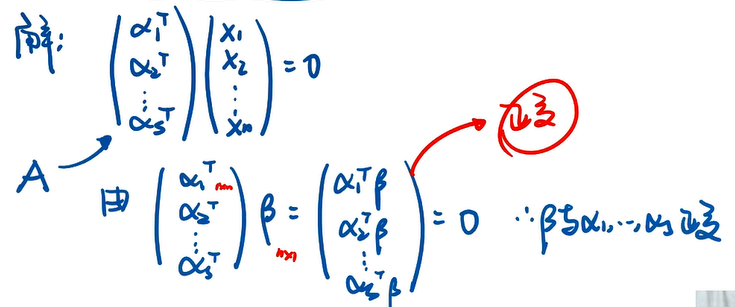 解: (α₁ᵀ α₂ᵀ ⋮ αₛᵀ) (x₁ x₂ ⋮ xₙ) = 0
正交
A
由 (α₁ᵀ α₂ᵀ ⋮ αₛᵀ) β = (α₁ᵀβ α₂ᵀβ ⋮ αₛᵀβ) = 0 ∴β与α₁,…,αₛ正交